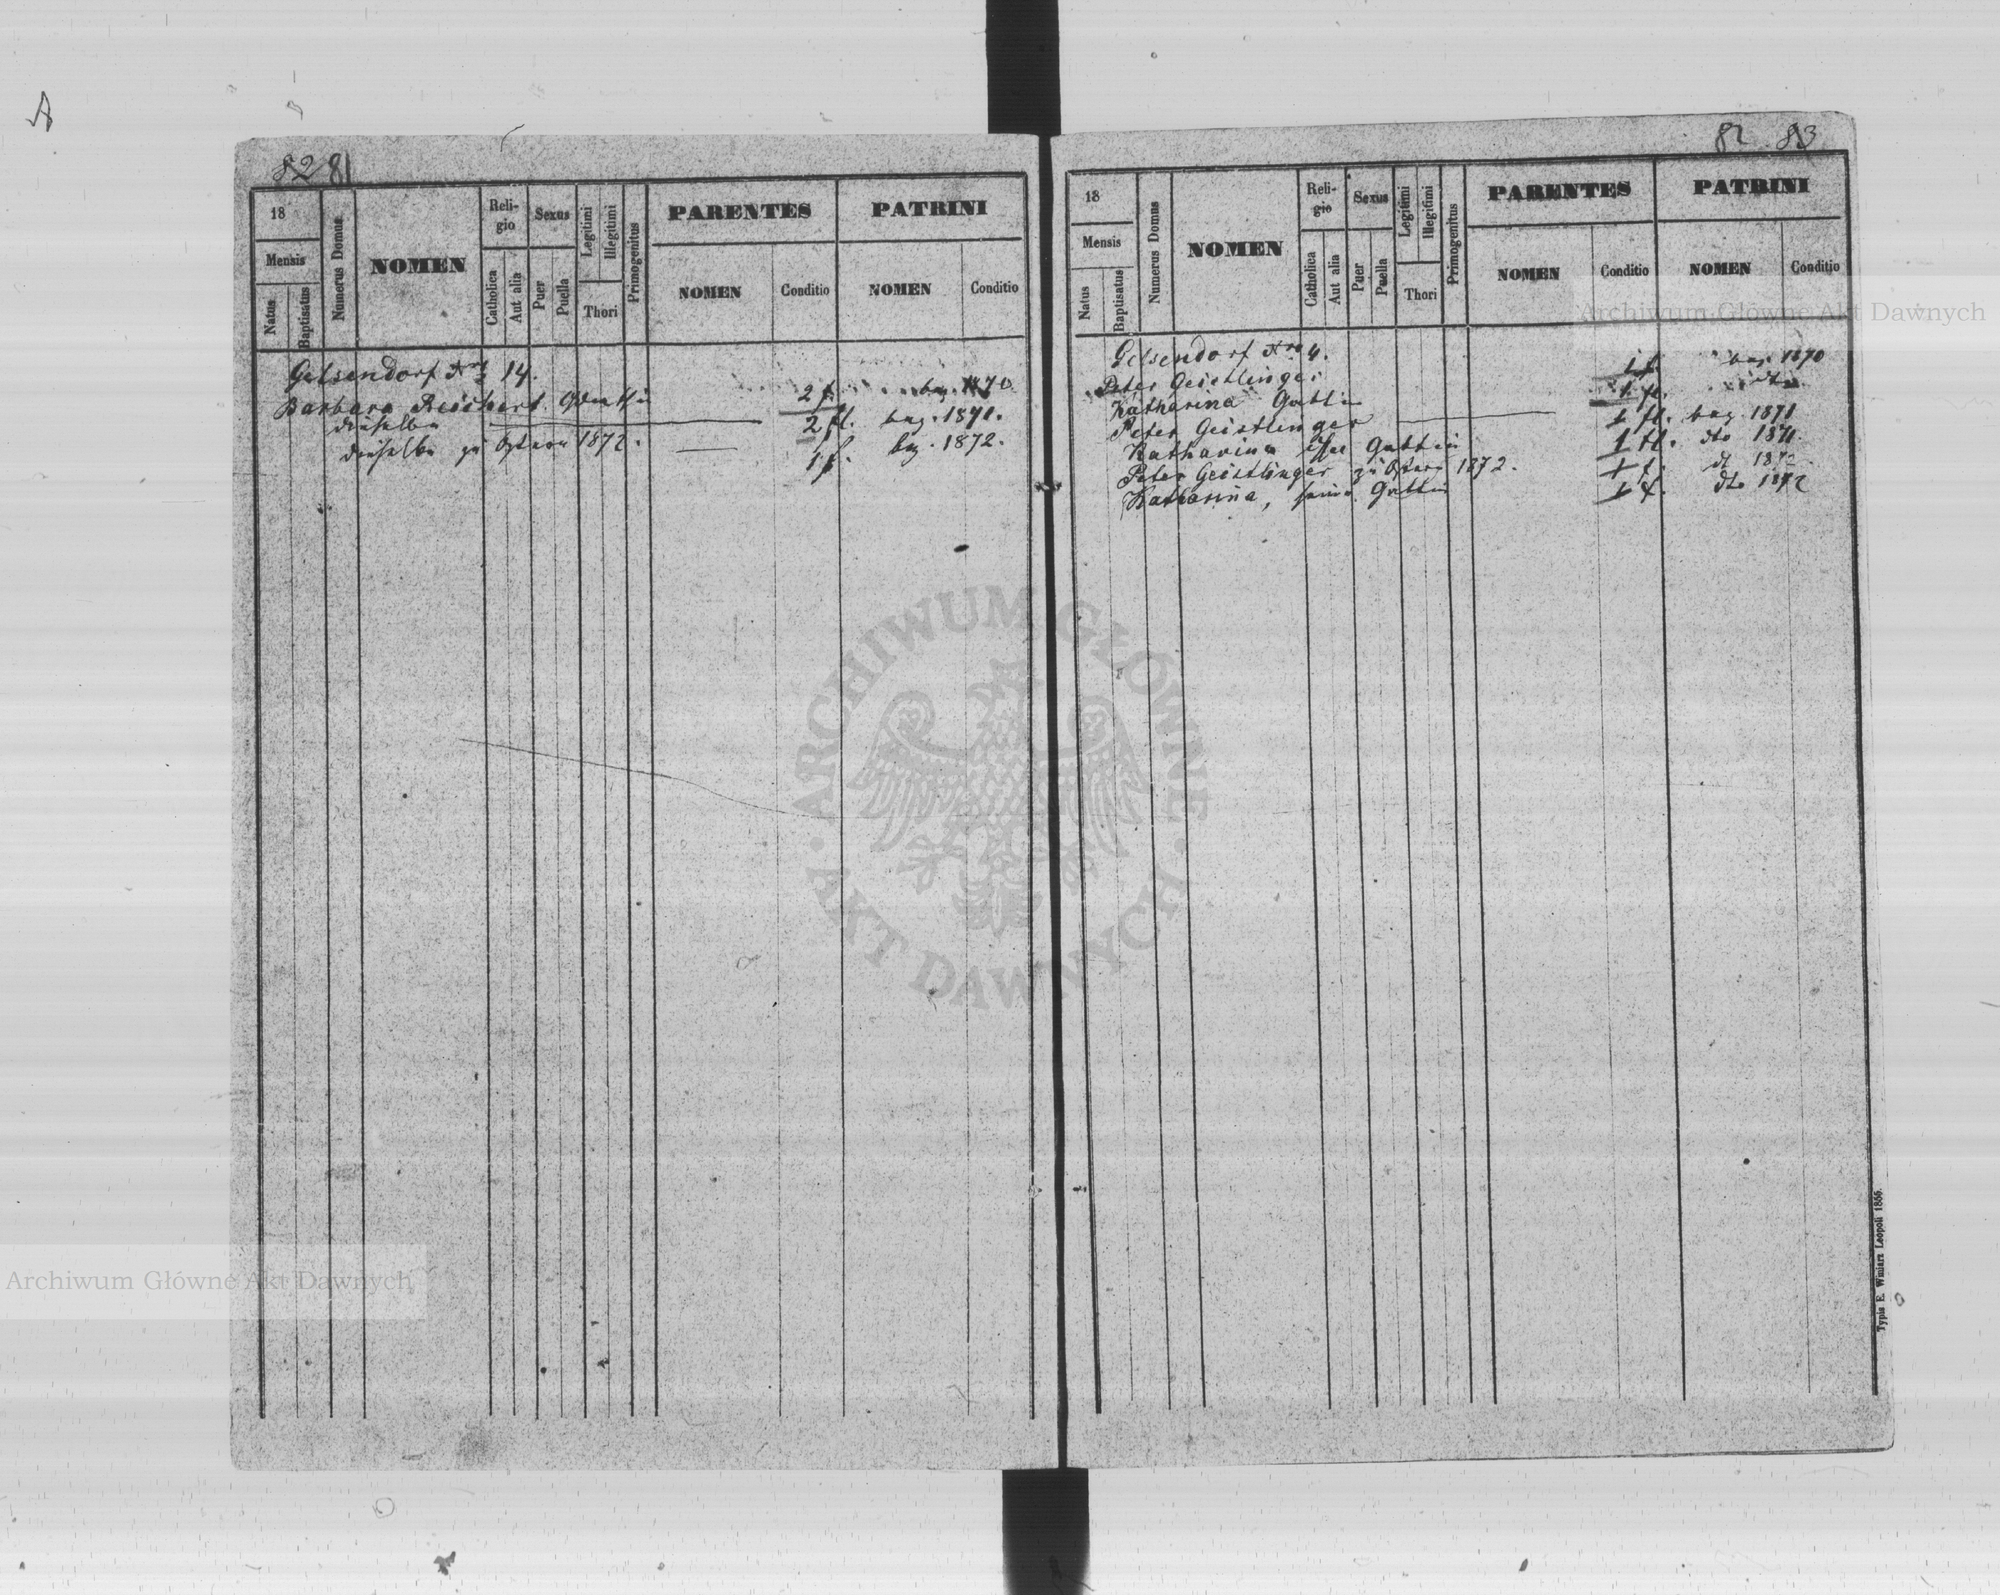 82 81
18
Mensis
Natus
Baptisatus
Numerus Domus
NOMEN
Reli-
gio
Catholica
Aut alia
Sexus
Puer
Puella
Legitimi
Illegitimi
Thori
Primogenitus
PARENTES
NOMEN
Conditio
PATRINI
NOMEN
Conditio
Gelsendorf Nro 14.
Barbara Reichert 2 f. 1870
dieselbe 2 fl. bez. 1871.
dieselbe zu Ostern 1872. 1 f. bz. 1872.
82 83
18
Mensis
Natus
Baptisatus
Numerus Domus
NOMEN
Reli-
gio
Catholica
Aut alia
Sexus
Puer
Puella
Legitimi
Illegitimi
Thori
Primogenitus
PARENTES
NOMEN
Conditio
PATRINI
NOMEN
Conditio
Gelsendorf Nro 4.
Peter Geistlinger 1 f. bez. 1870
Katharina Gattin 1 fl. dto
Peter Geistlinger 1 fl. bez. 1871
Katharina Gattin 1 fl. dto 1871.
Peter Geistlinger zu Ostern 1872. 1 f. dt 1872.
Katharina, seine Gattin 1 f. dto 1872
Typis E. Winiarz Leopoli 1866.
Archiwum Główne Akt Dawnych
ARCHIWUM GŁÓWNE · AKT DAWNYCH ·
Archiwum Główne Akt Dawnych